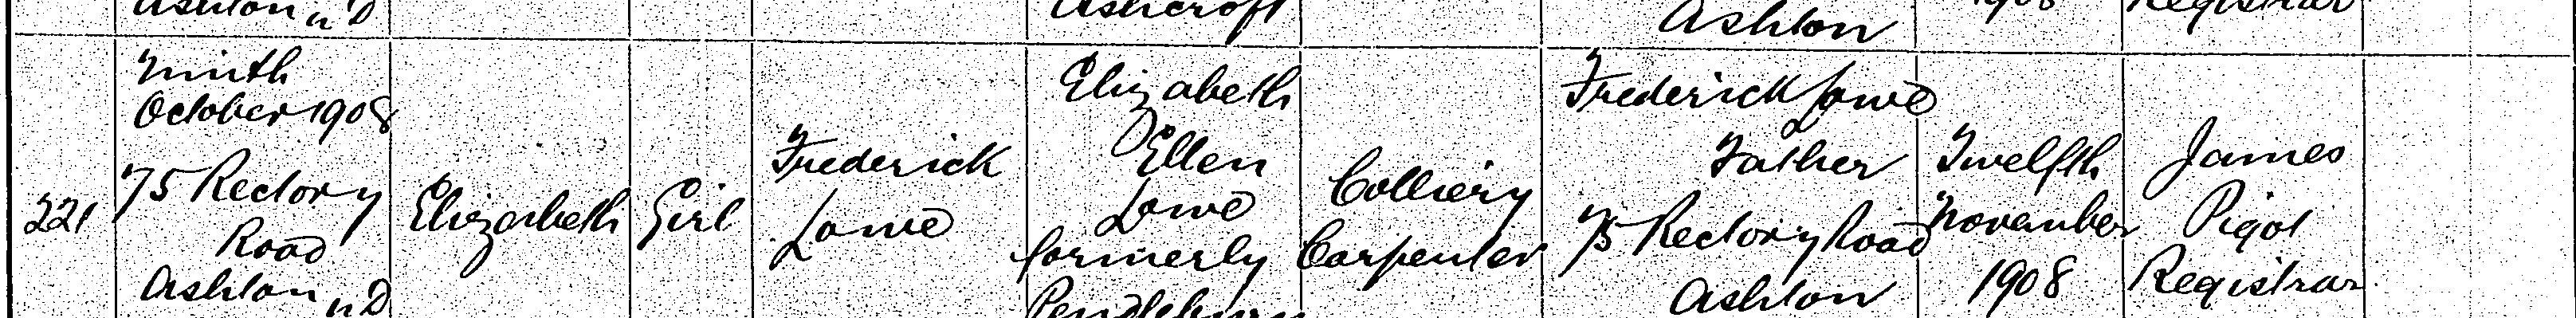 Ashton nD
Ashcroft
Ashton
1908
Registrar
221
Ninth
October 1908
75 Rectory
Road
Ashton nD
Elizabeth
Girl
Frederick
Lowe
Elizabeth
Ellen
Lowe
formerly
Pendlebury
Colliery
Carpenter
Frederick Lowe
Father
75 Rectory Road
Ashton
Twelfth
November
1908
James
Pigot
Registrar